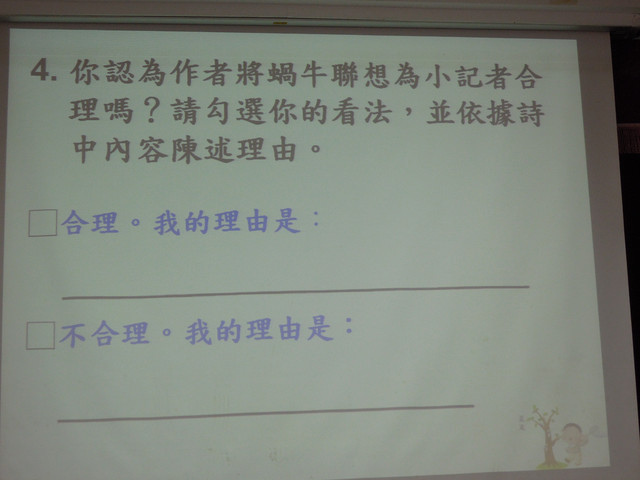 4. 你認為作者將蝸牛聯想為小記者合
理嗎？請勾選你的看法，並依據詩
中內容陳述理由。
合理。我的理由是：
不合理。我的理由是：